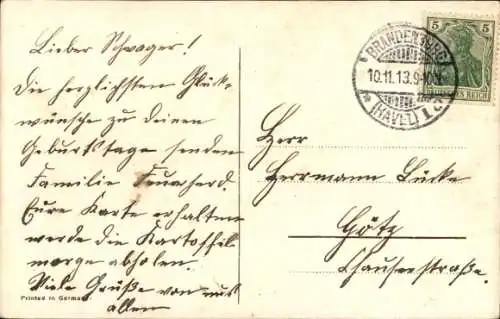 Lieber Schwager!
Die herzlichsten Glück-
wünsche zu deinen
Geburtstage senden
Familie Feuerherd.
Eure Karte erhalten
werde die Kartoffel
morge abholen.
Viele Grüße von uns
allen
Printed in Germany
5 5
DEUTSCHES REICH
BRANDENBURG
10.11.13.9-10V.
* (HAVEL) 1
Herr
Herrmann Lücke
Götz
Chauserstraße.